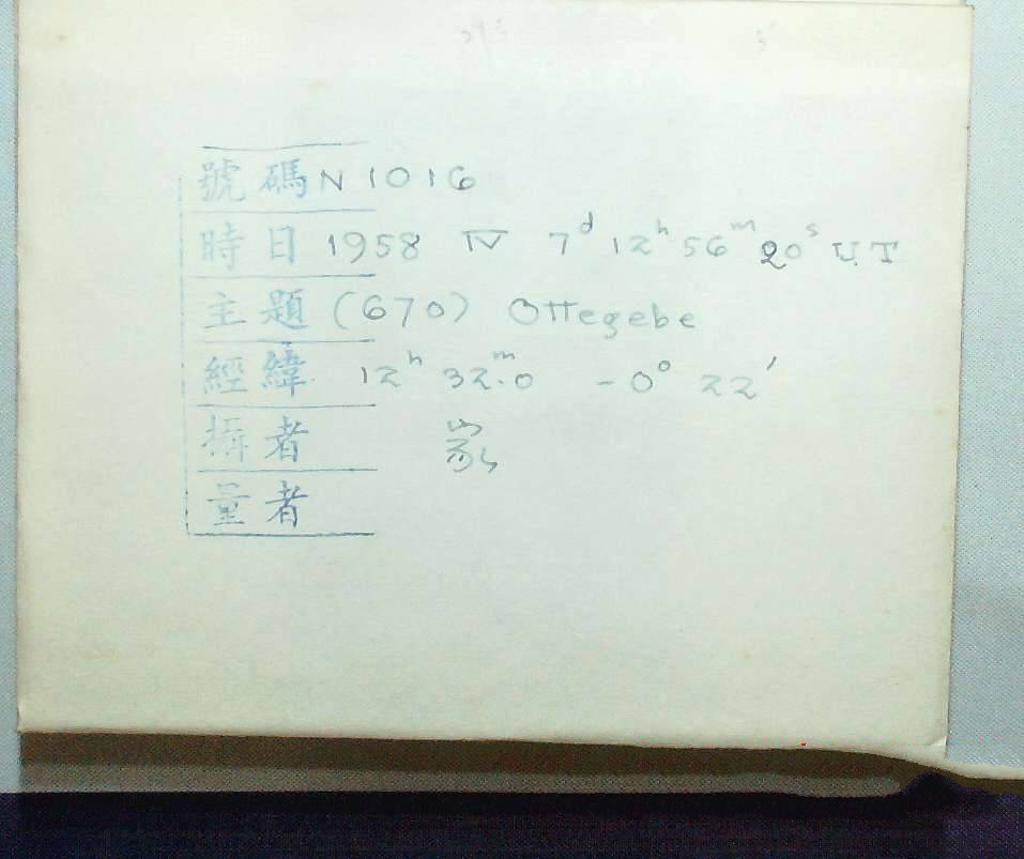 號碼 N 1016
時日 1958 IV 7d 12h 56m 20s U.T
主題 (670) Ottegebe
經緯 12h 32m.0 -0° 22′
攝者
量者